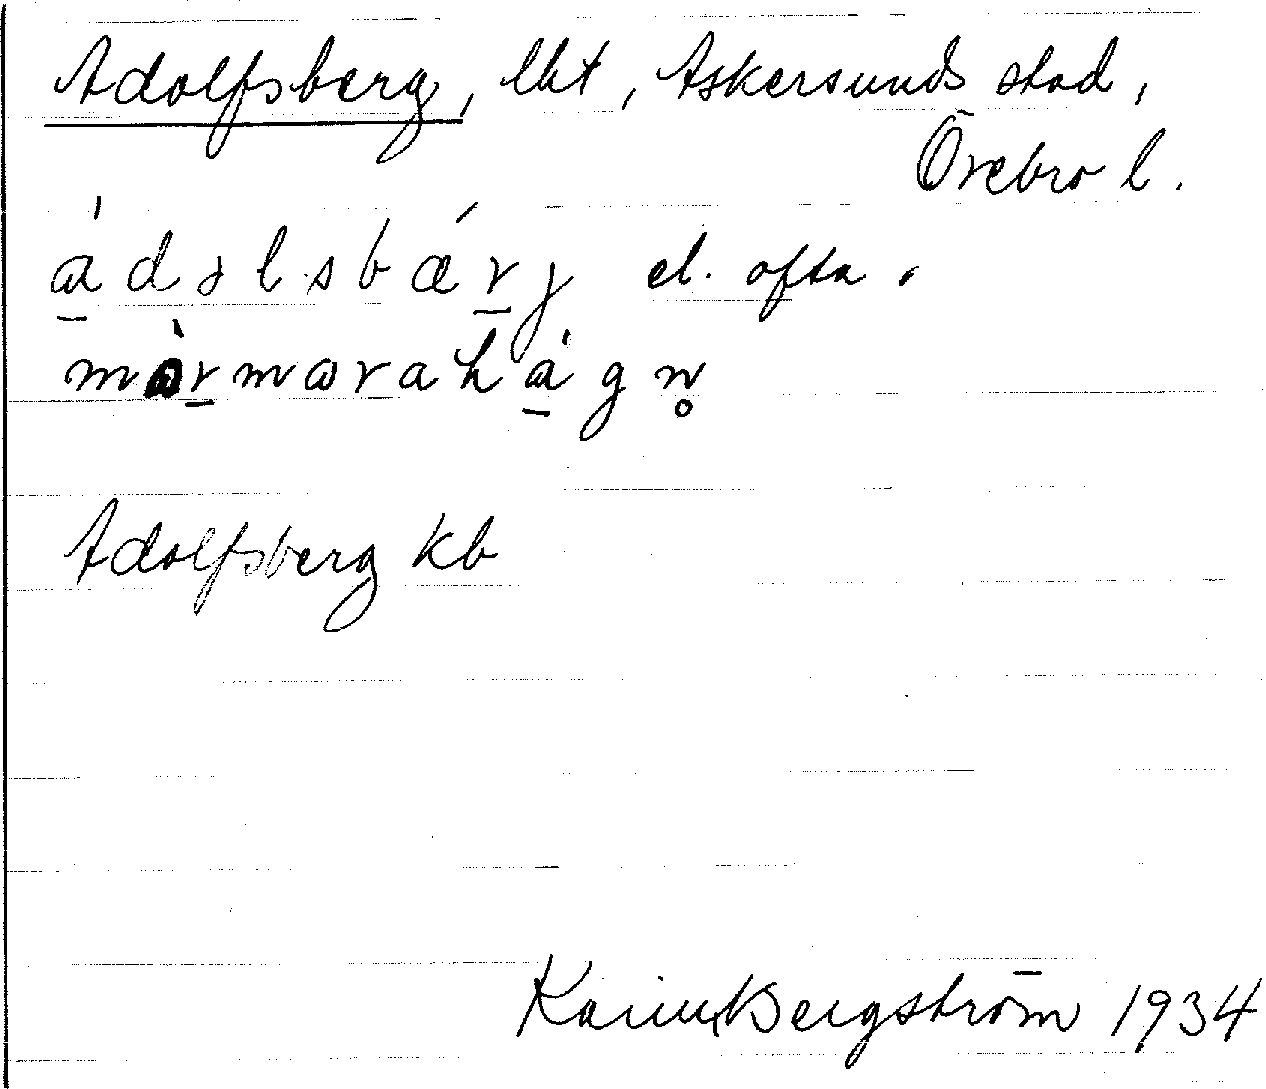 Adolfsberg, lht, Askersunds stad,
Örebro l.
ádɔlsbǽrj el. ofta.
màrmarahágn̥
Adolfsberg kb
Karin Bergström 1934